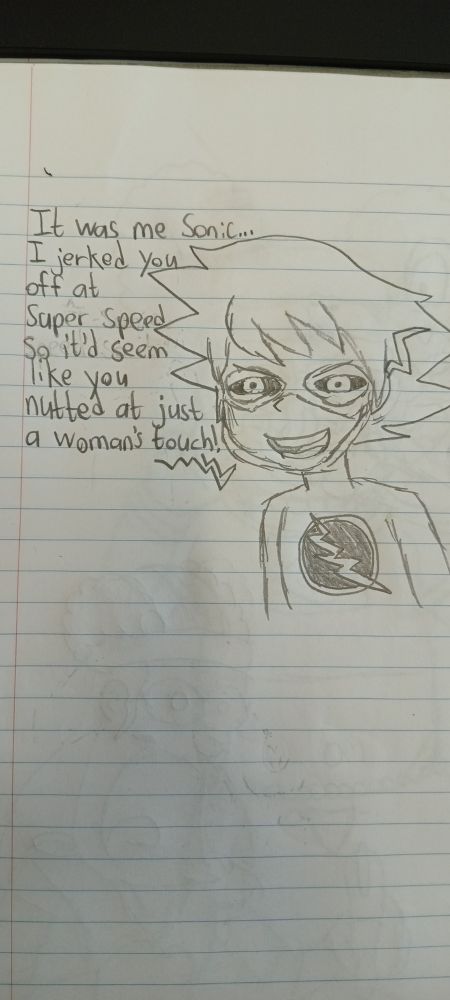 It was me Sonic...
I jerked you
off at
Super Speed
So it'd seem
like you
nutted at just
a woman's touch!